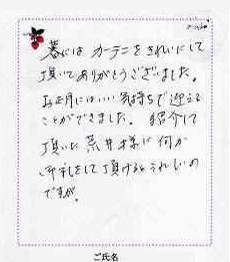 暮には カーテンをきれいにして
頂いてありがとうございました。
お正月にはいい気持ちで迎える
ことができました。 紹介して
頂いた荒井様に何か
御礼をして頂けるとうれしいの
ですが。
ご氏名